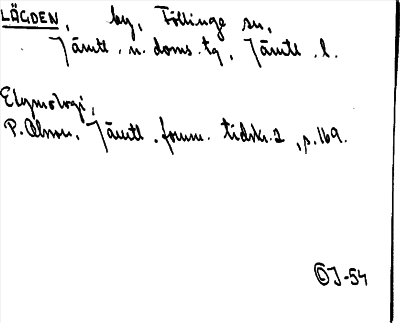 LÄGDEN, by, Föllinge sn,
Jämtl. n. doms. tg, Jämtl. l.
Etymologi,
P. Olsson, Jämtl. fornm. tidskr. 2, s. 169.
ÖJ-54